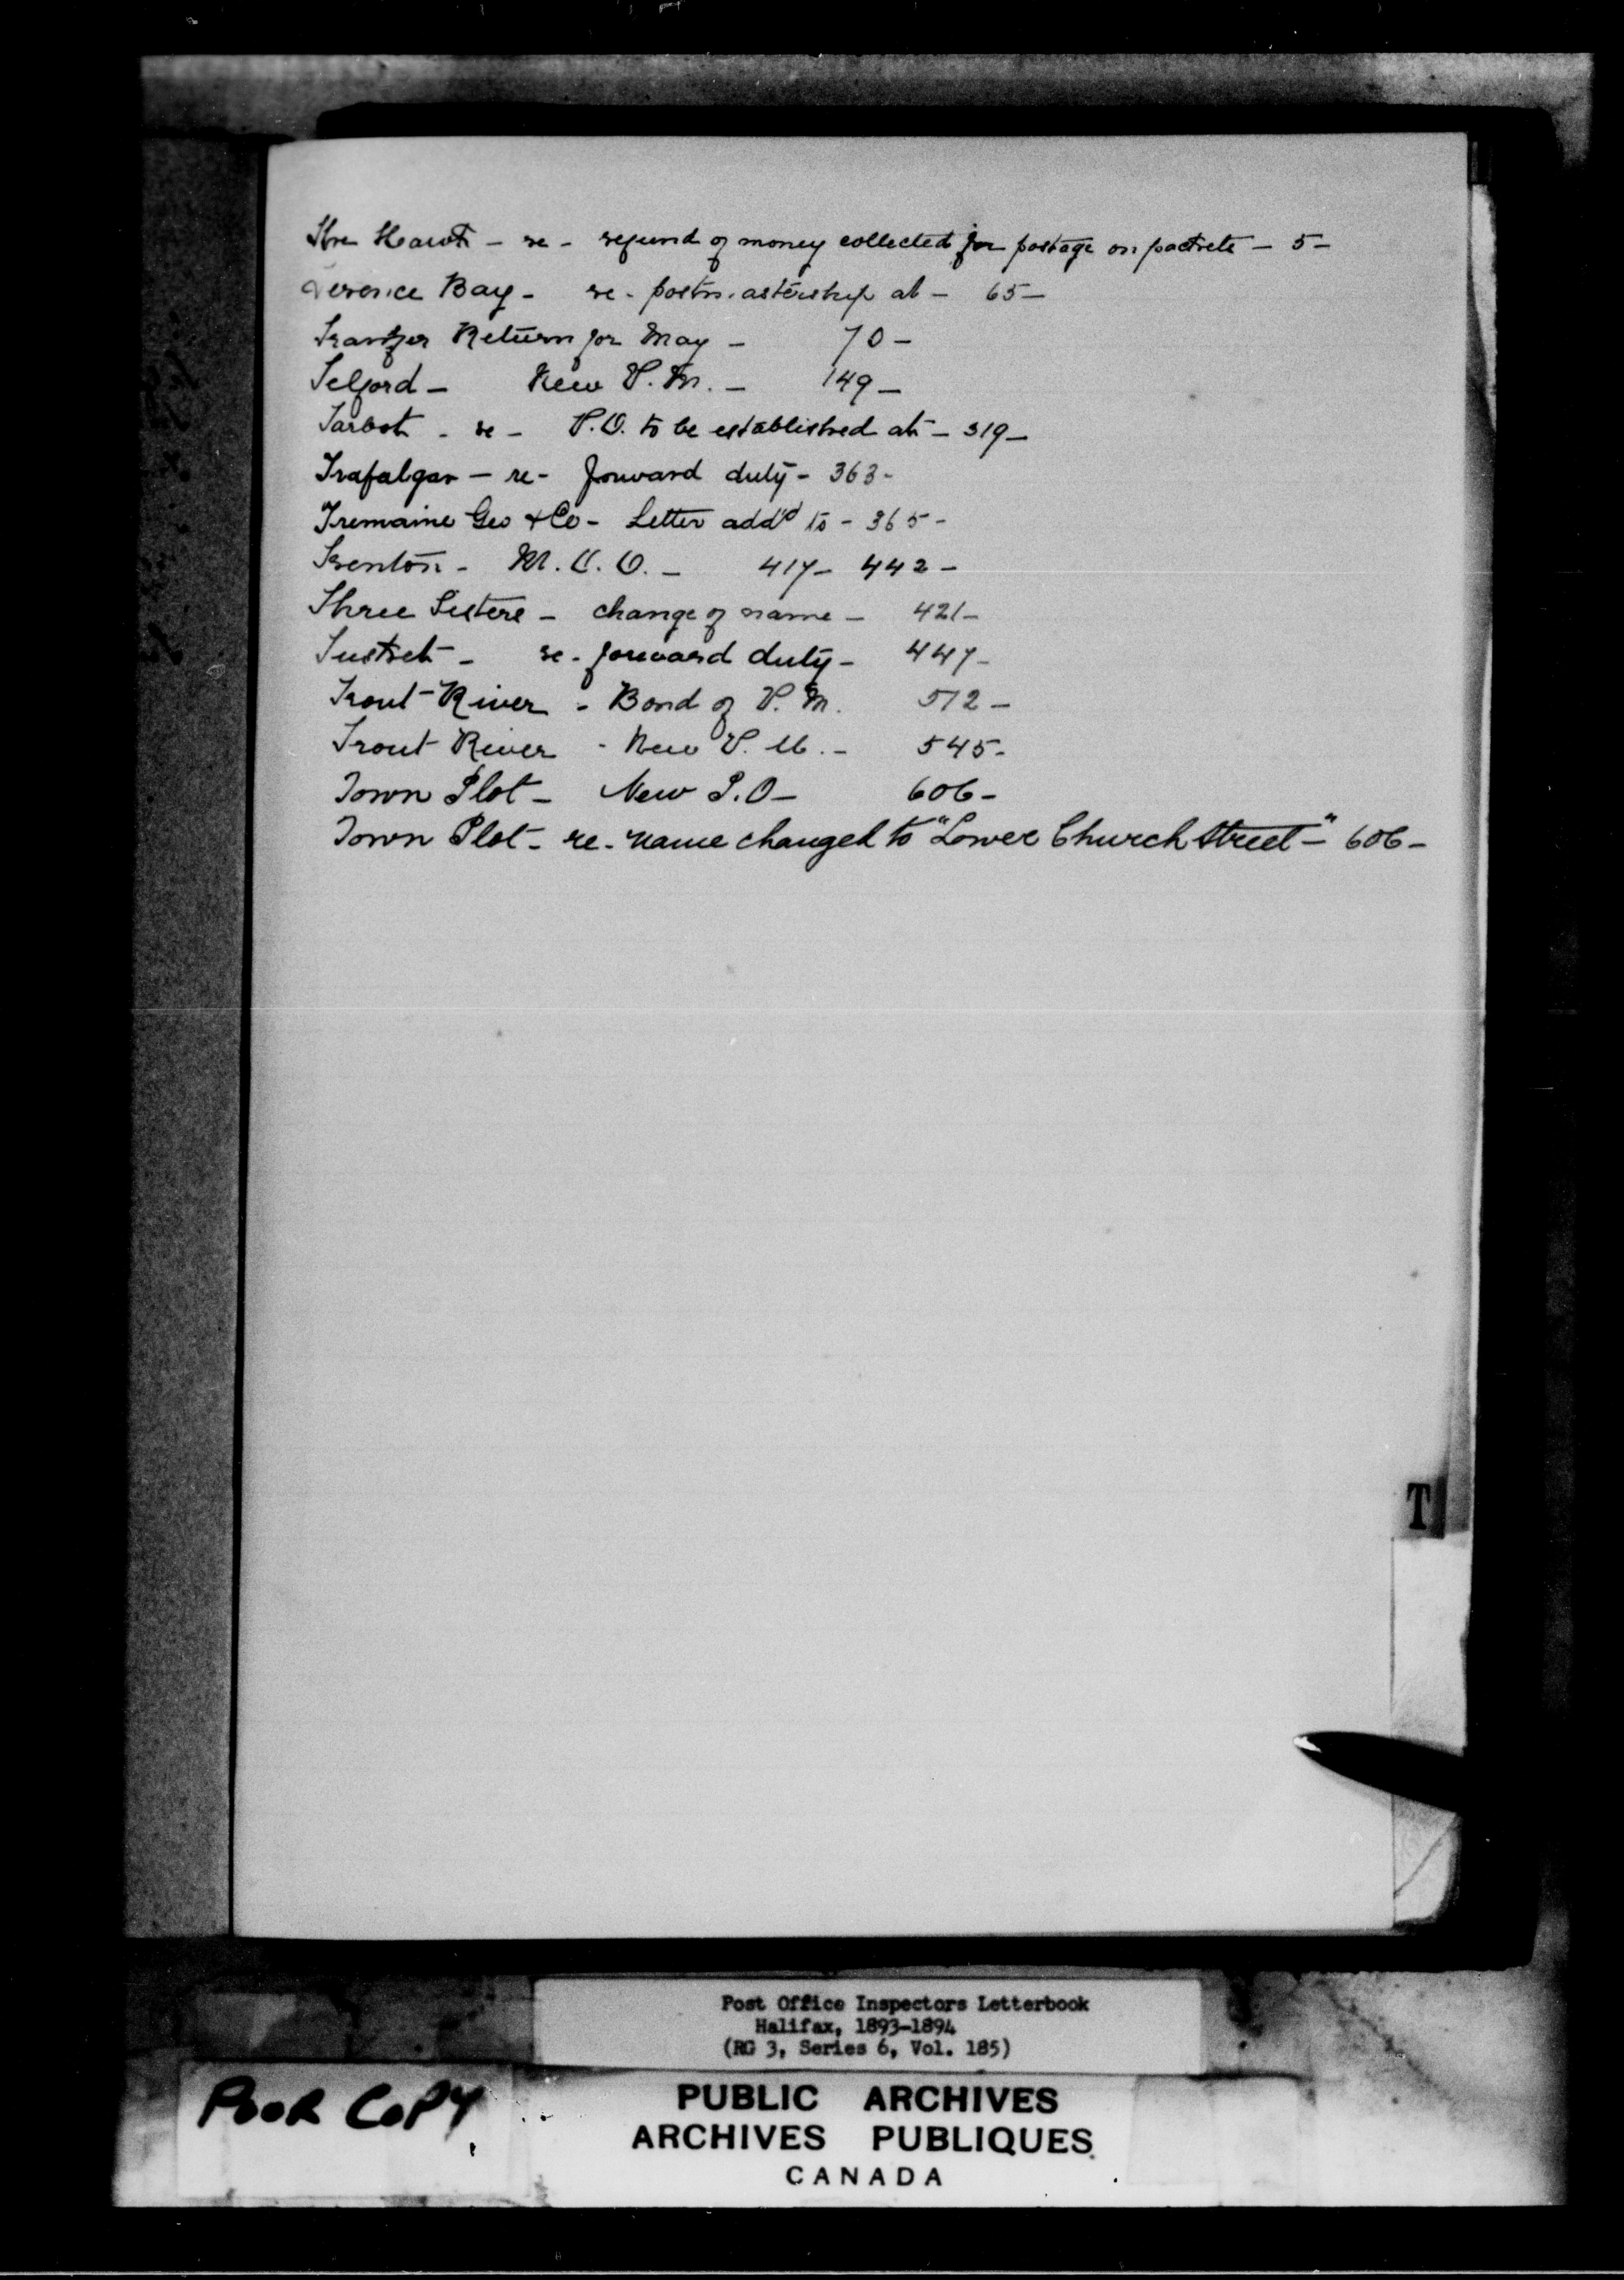 The Hawk - re - refund of money collected for postage on packets - 5 -
Terence Bay - re - postmastership at - 65 -
Transfer Return for May - 70 -
Telford - New P.M. - 149 -
Tarbot - re - P.O. to be established at - 319 -
Trafalgar - re - forward duty - 363 -
Tremaine Geo & Co - Letter add'd to - 365 -
Trenton - M.O.O. - 417 - 442 -
Three Sisters - change of name - 421 -
Tusket - re - forward duty - 447 -
Trout River - Bond of P.M. 512 -
Trout River - New P.M. - 545 -
Town Plot - New P.O - 606 -
Town Plot - re - name changed to "Lower Church Street -" 606 -
T
Post Office Inspectors Letterbook
Halifax, 1893-1894
(RG 3, Series 6, Vol. 185)
POOR COPY
PUBLIC ARCHIVES
ARCHIVES PUBLIQUES
CANADA